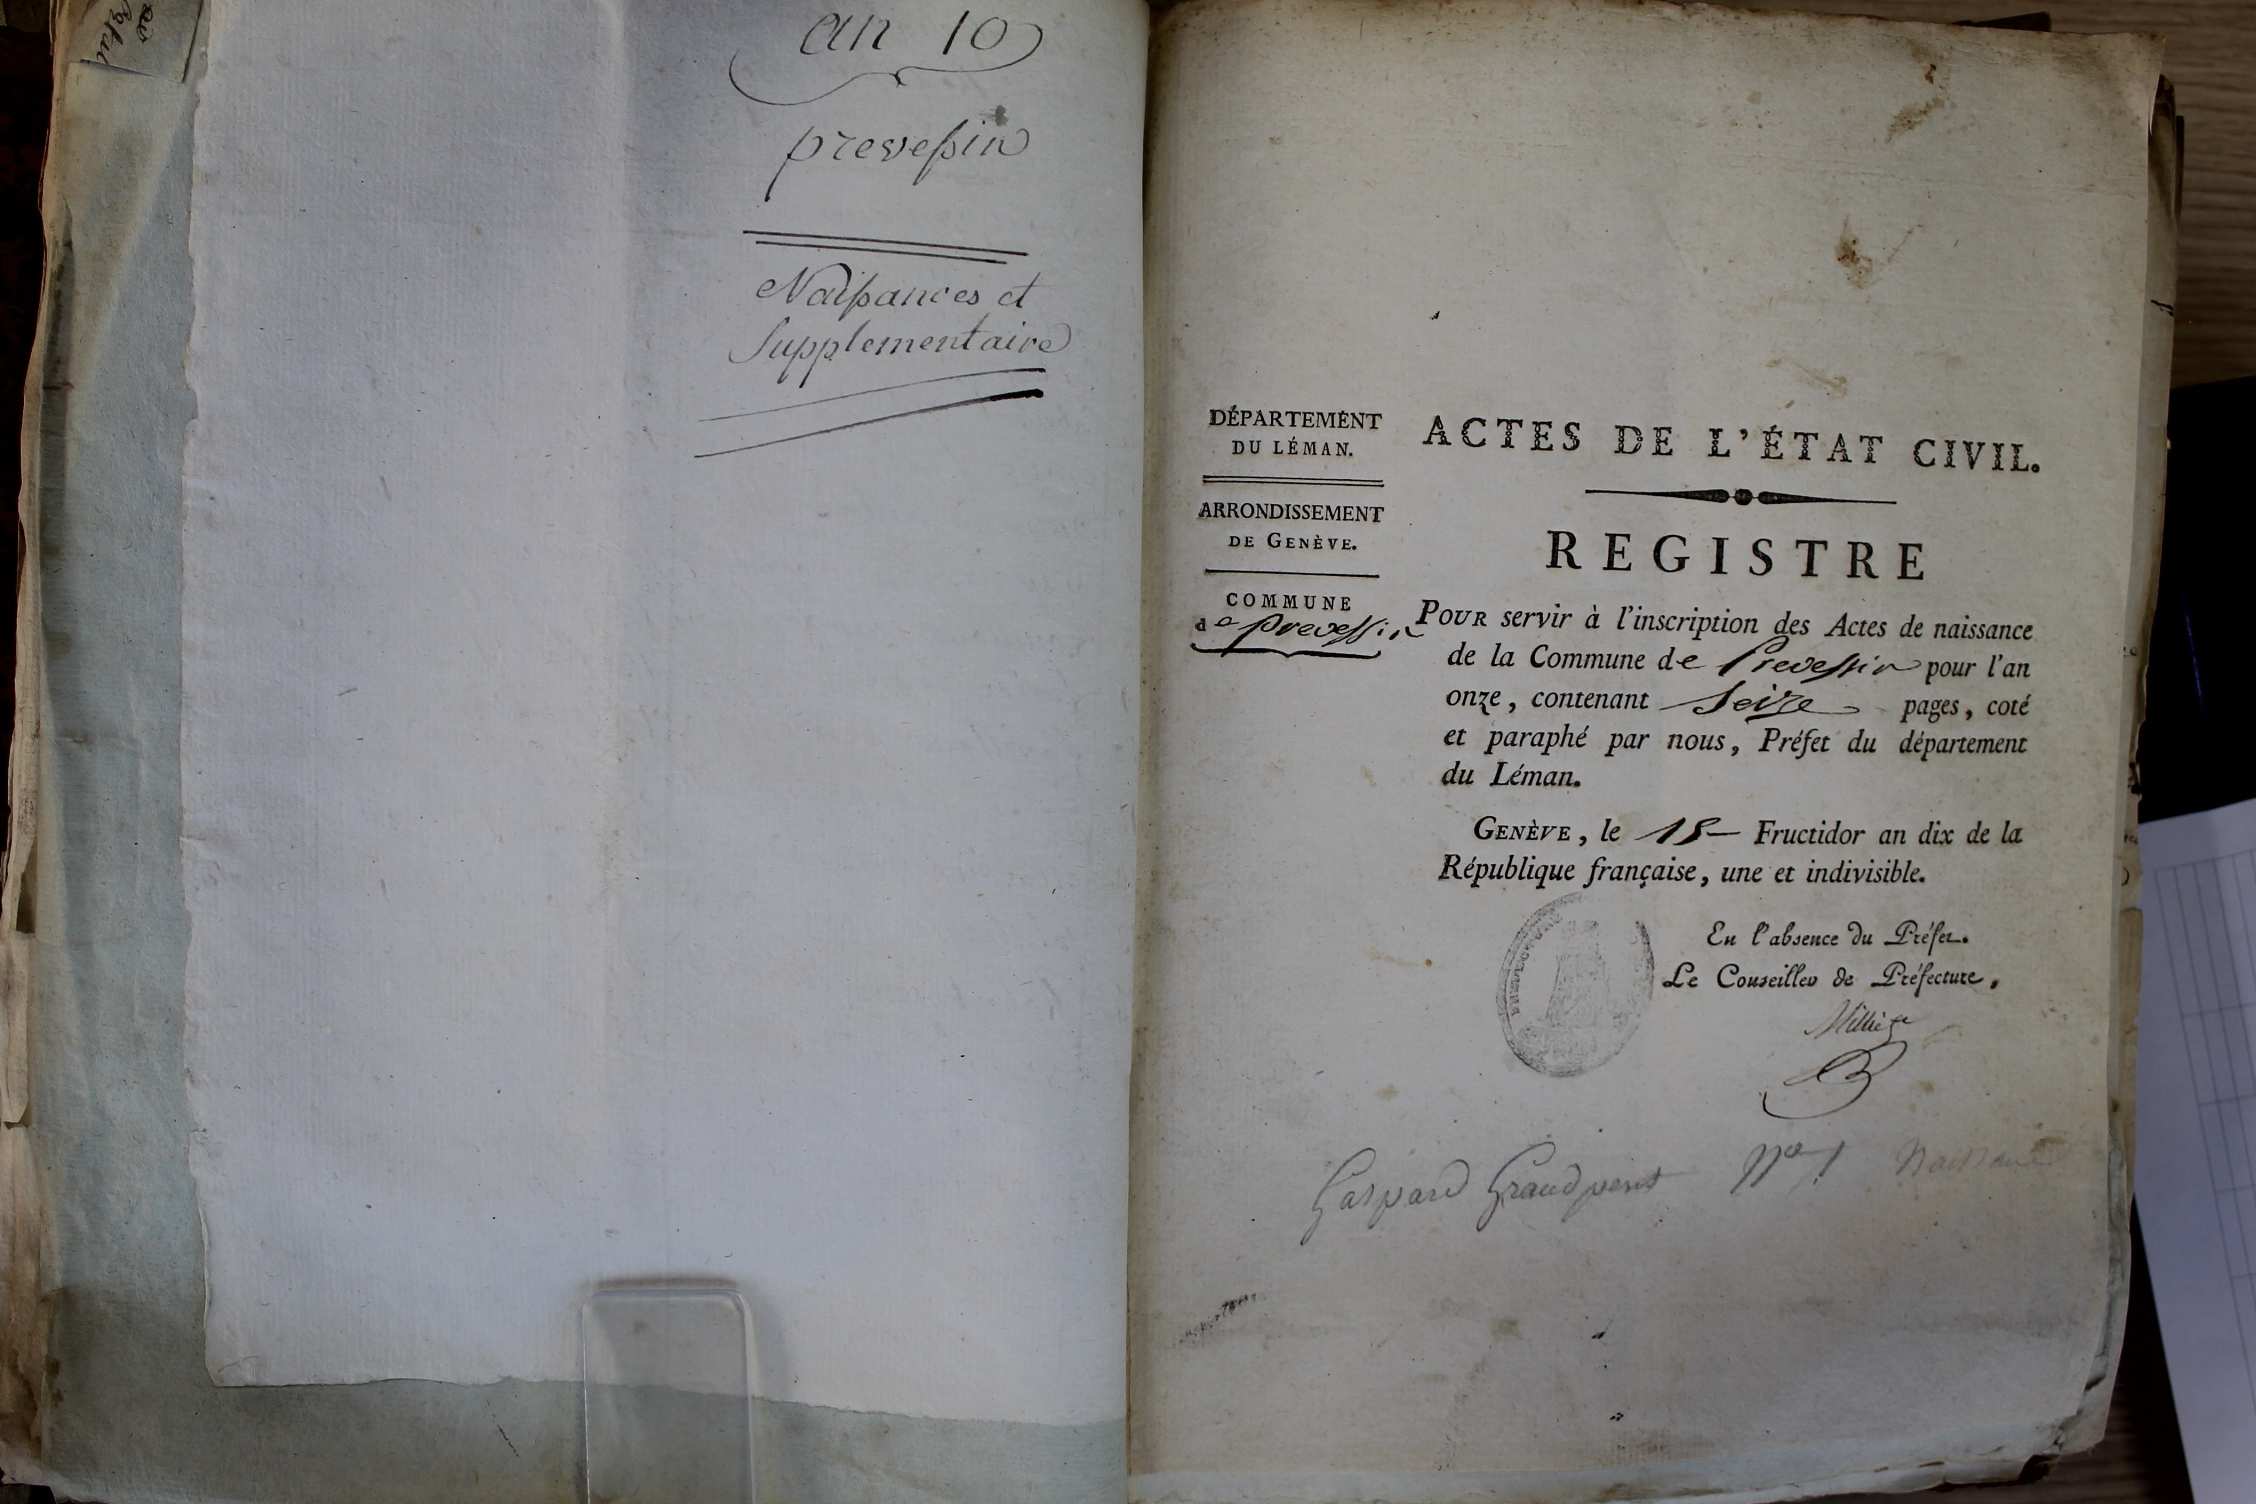 an 10
prevessin
Naissances et
Supplementaire
DÉPARTEMENT
DU LÉMAN.
ARRONDISSEMENT
DE GENÈVE.
COMMUNE
de prevessin
ACTES DE L'ÉTAT CIVIL.
REGISTRE
POUR servir à l'inscription des Actes de naissance
de la Commune de Prevessin pour l'an
onze, contenant Seize pages, coté
et paraphé par nous, Préfet du département
du Léman.
GENÈVE, le 15 Fructidor an dix de la
République française, une et indivisible.
En l'absence du Préfet.
Le Conseiller de Préfecture,
Gaspard Grandperret N° 1 Naissance